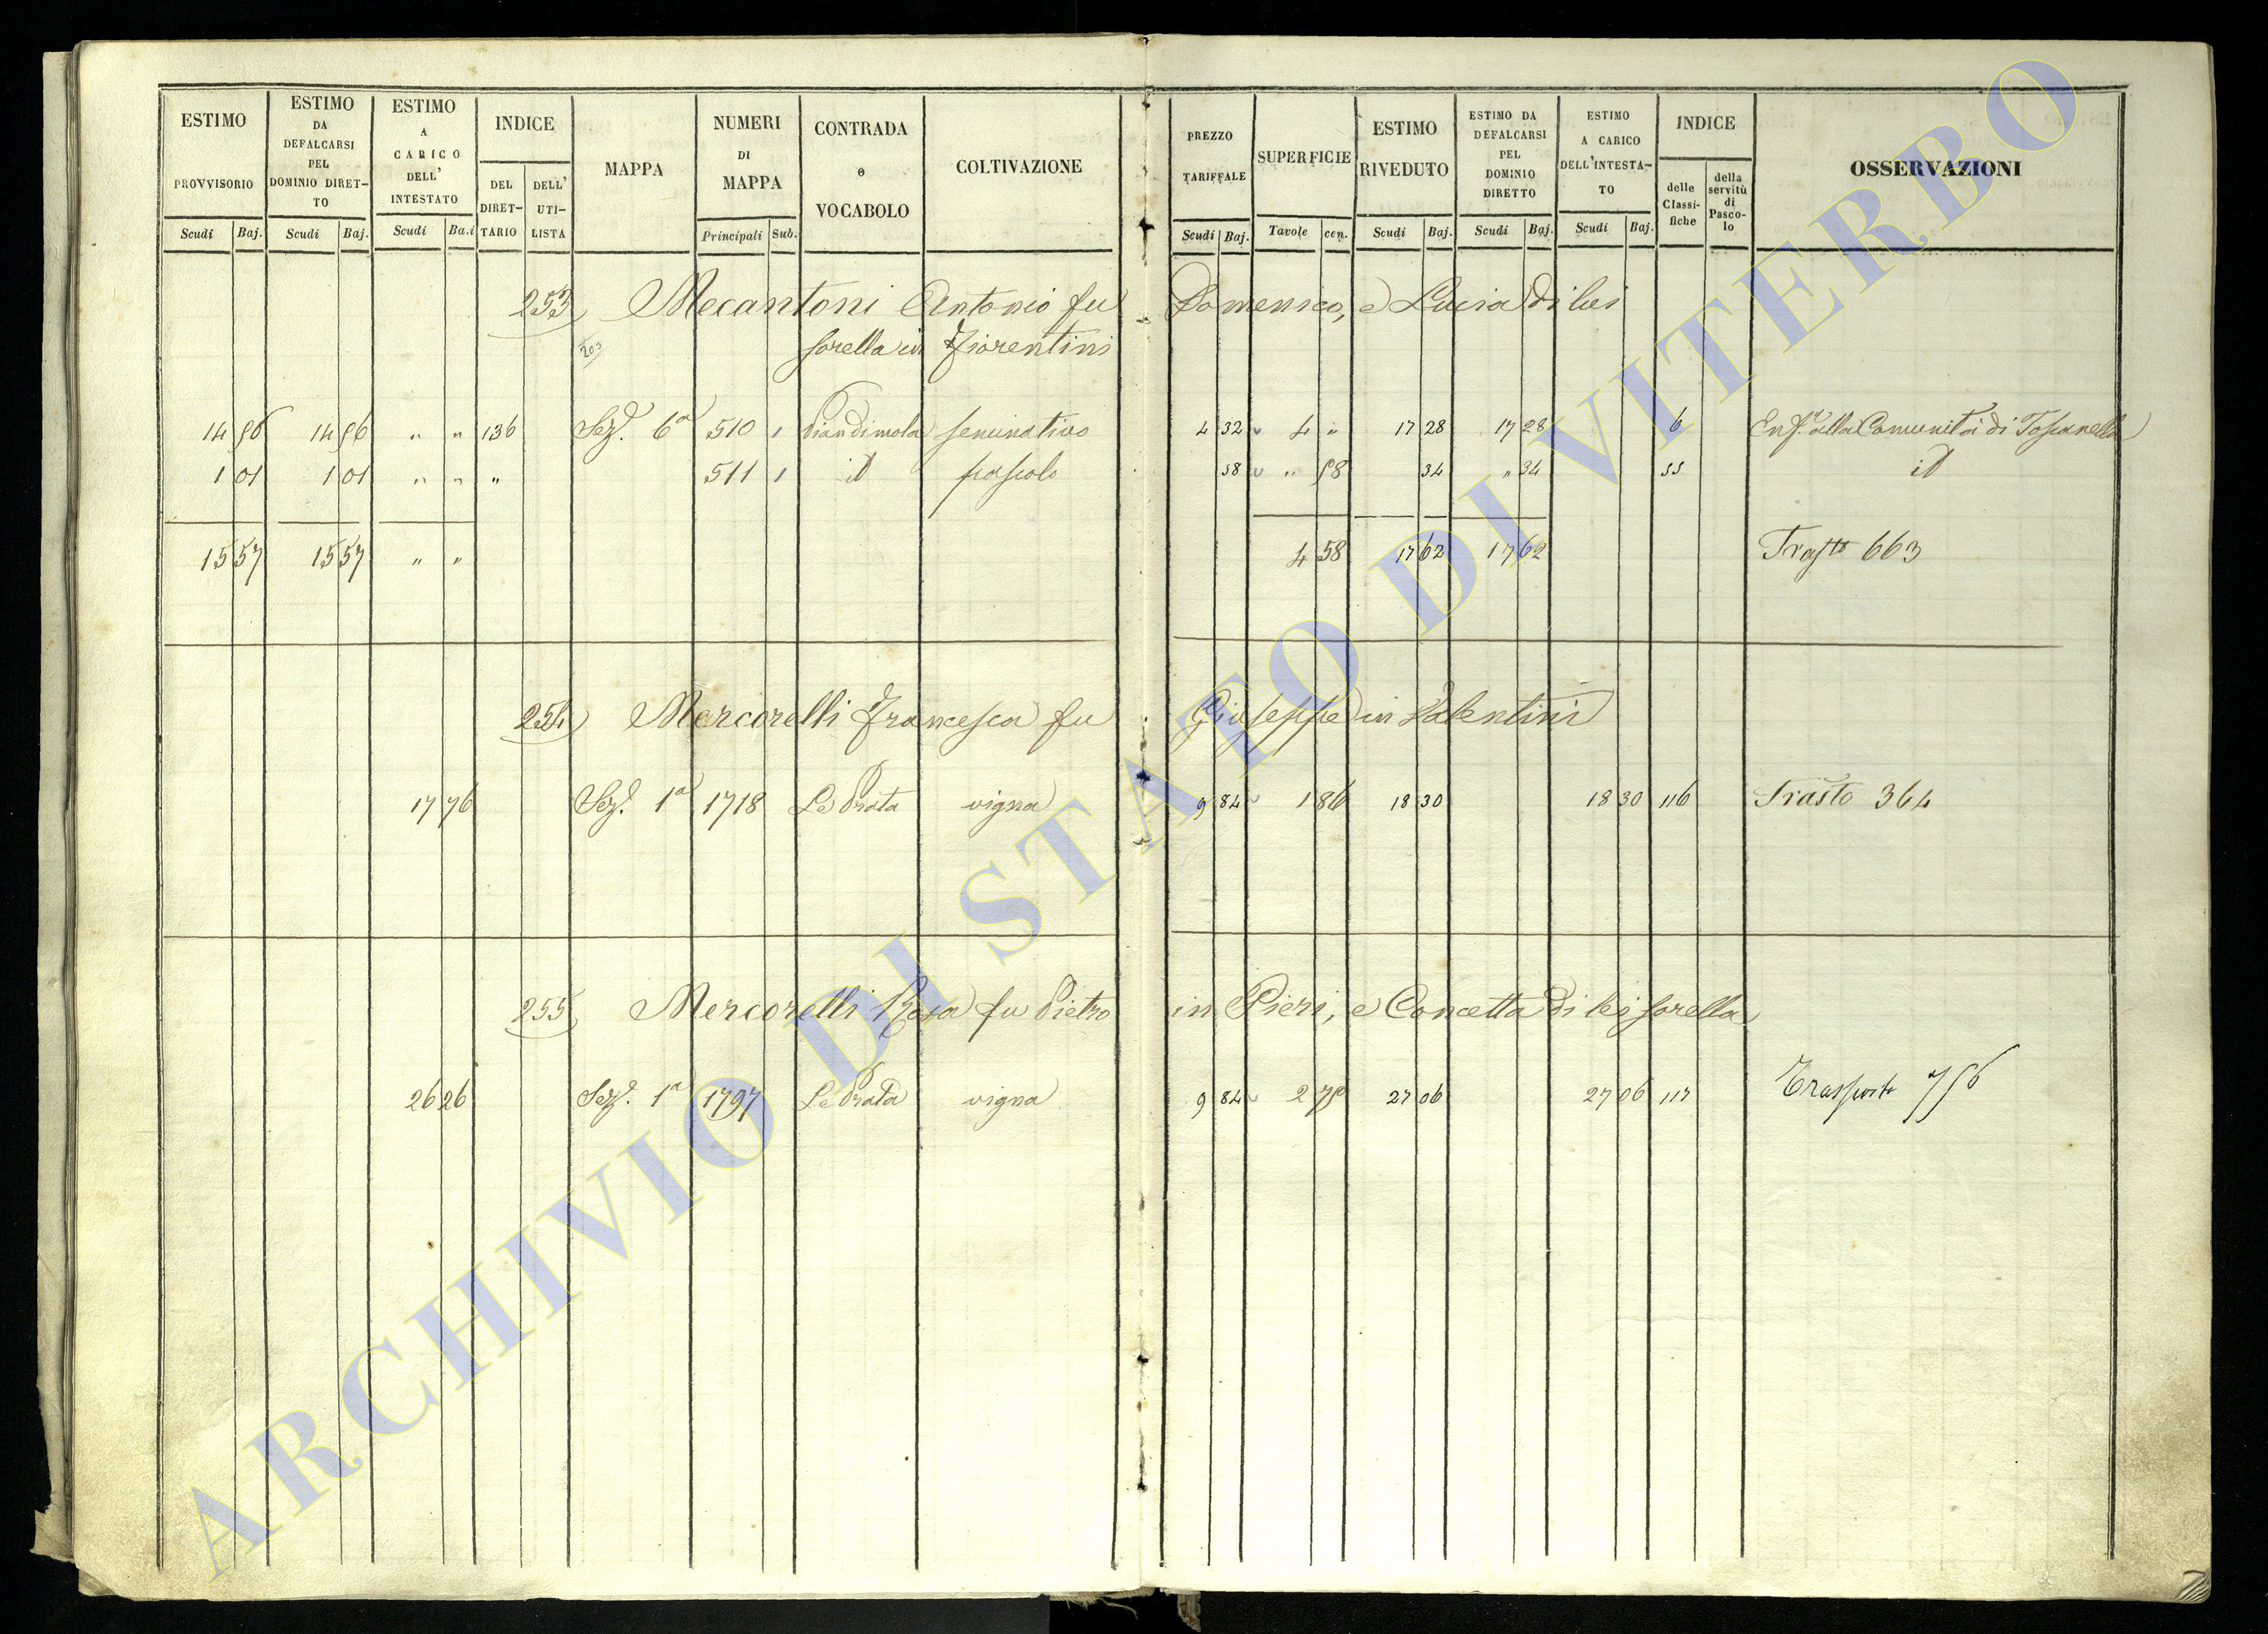 ESTIMO PROVVISORIO
Scudi Baj.
ESTIMO DA DEFALCARSI PEL DOMINIO DIRETTO
Scudi Baj.
ESTIMO A CARICO DELL' INTESTATO
Scudi Ba.i
INDICE
DEL DIRETTARIO
DELL' UTILISTA
MAPPA
NUMERI DI MAPPA
Principali Sub.
CONTRADA o VOCABOLO
COLTIVAZIONE
PREZZO TARIFFALE
Scudi Baj.
SUPERFICIE
Tavole cen.
ESTIMO RIVEDUTO
Scudi Baj.
ESTIMO DA DEFALCARSI PEL DOMINIO DIRETTO
Scudi Baj.
ESTIMO A CARICO DELL'INTESTATO
Scudi Baj.
INDICE
delle Classifiche
della servitù di Pascolo
OSSERVAZIONI
253 Mecantoni Antonio fu Domenico, e Lucia di lui
203 sorella in Fiorentini
14 56 14 56 " " 136 Sez.e 6a 510 1 Piandimola seminativo 4 32 4 " 17 28 17 28 6 Enf.a alla Comunità di Toscanella
1 01 1 01 " " " 511 1 id pascolo 58 " 58 34 " 34 55 id
15 57 15 57 " " 4 58 17 62 17 62 Trasto 663
254 Mercorelli Francesca fu Giuseppe in Valentini
17 76 Sez.e 1a 1718 Le Prata vigna 9 84 1 86 18 30 18 30 116 Trasto 364
255 Mercorelli Rosa fu Pietro in Pieri, e Concetta di lei sorella
26 26 Sez.e 1a 1797 Le Prata vigna 9 84 2 75 27 06 27 06 117 Trasporto 756
ARCHIVIO DI STATO DI VITERBO